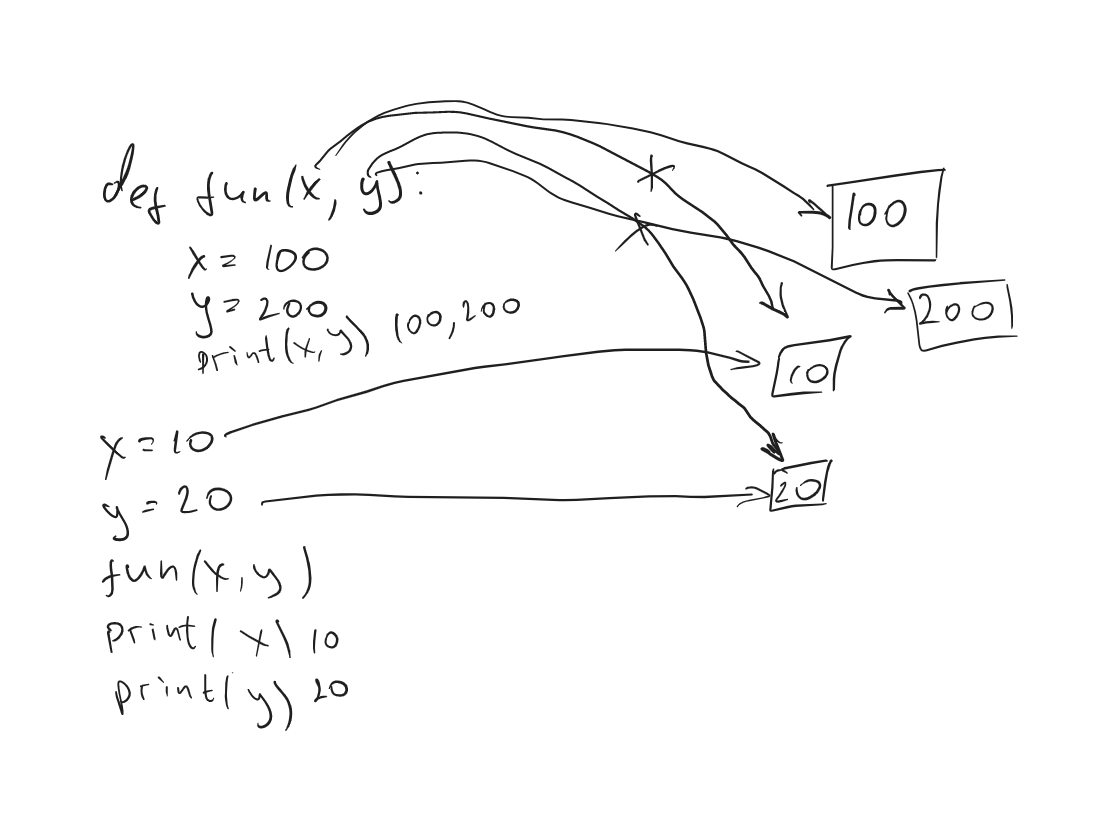 def fun(x, y):
x = 100
y = 200
print(x, y) 100, 200
x = 10
y = 20
fun(x, y)
print( x \ 10
print(y) 20
100
200
10
20